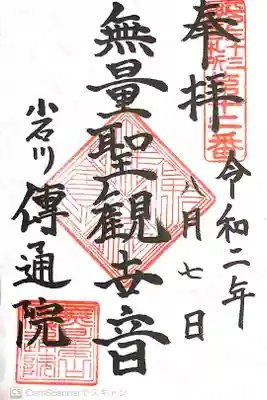 奉拝
三十三
札所
第十二番
令和二年
八月七日
無量聖観世音
小石川
傳通院
CS CamScannerでスキャン